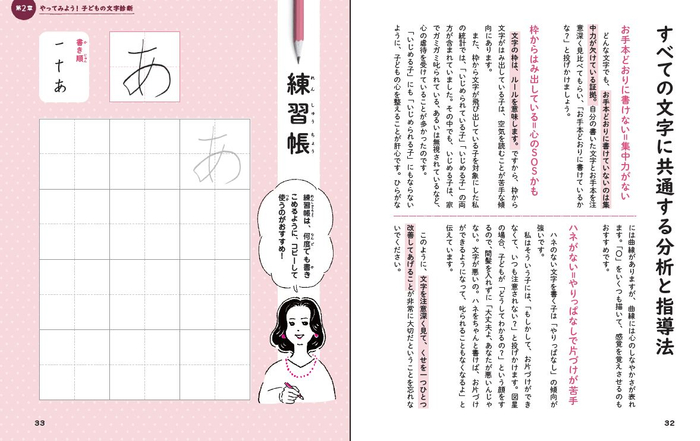 すべての文字に共通する分析と指導法
お手本どおりに書けない=集中力がない
どんな文字でも、お手本どおりに書けていないのは集
中力が欠けている証拠。自分の書いた文字とお手本を注
意深く見比べてもらい、「お手本どおりに書けているか
な?」と投げかけましょう。
枠からはみ出している=心のSOSかも
文字の枠は、ルールを意味します。ですから、枠から
文字がはみ出している子は、空気を読むことが苦手な傾
向にあります。
また、枠から文字が飛び出している子を対象にした私
の統計では、「いじめられている子」「いじめる子」の両
方が含まれていました。その中でも、いじめる子は、家
でガミガミ叱られている、あるいは無視されているなど、
心の虐待を受けていることが多かったのです。
「いじめる子」にも「いじめられる子」にもならない
ように、子どもの心を整えることが肝心です。ひらがな
には曲線がありますが、曲線には心のしなやかさが表れ
ます。「〇」をいくつも描いて、感覚を覚えさせるのも
おすすめです。
ハネがない=やりっぱなしで片づけが苦手
ハネのない文字を書く子は「やりっぱなし」の傾向が
強いです。
私はそういう子には、「もしかして、お片づけができ
なくて、いつも注意されない?」と投げかけます。図星
の場合、子どもが「どうしてわかるの?」という顔をす
るので、間髪を入れずに「大丈夫よ。あなたが悪いんじゃ
ない。文字が悪いの。ハネをちゃんと書けば、お片づけ
ができるようになって、叱られることもなくなるよ」と
伝えています。
このように、文字を注意深く見て、くせを一つひとつ
改善してあげることが非常に大切だということを忘れな
いでください。
32
第2章
やってみよう!子どもの文字診断
練習帳
れんしゅうちょう
あ
書き順
一
十
あ
あ
練習帳は、何度でも書き
こめるように、コピーして
使うのがおすすめ!
33